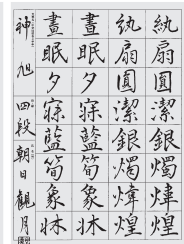 紈扇圓潔銀燭煒煌
紈扇圓潔銀燭煒煌
晝眠夕寐藍筍象牀
晝眠夕寐藍筍象牀
四段 朝日観月